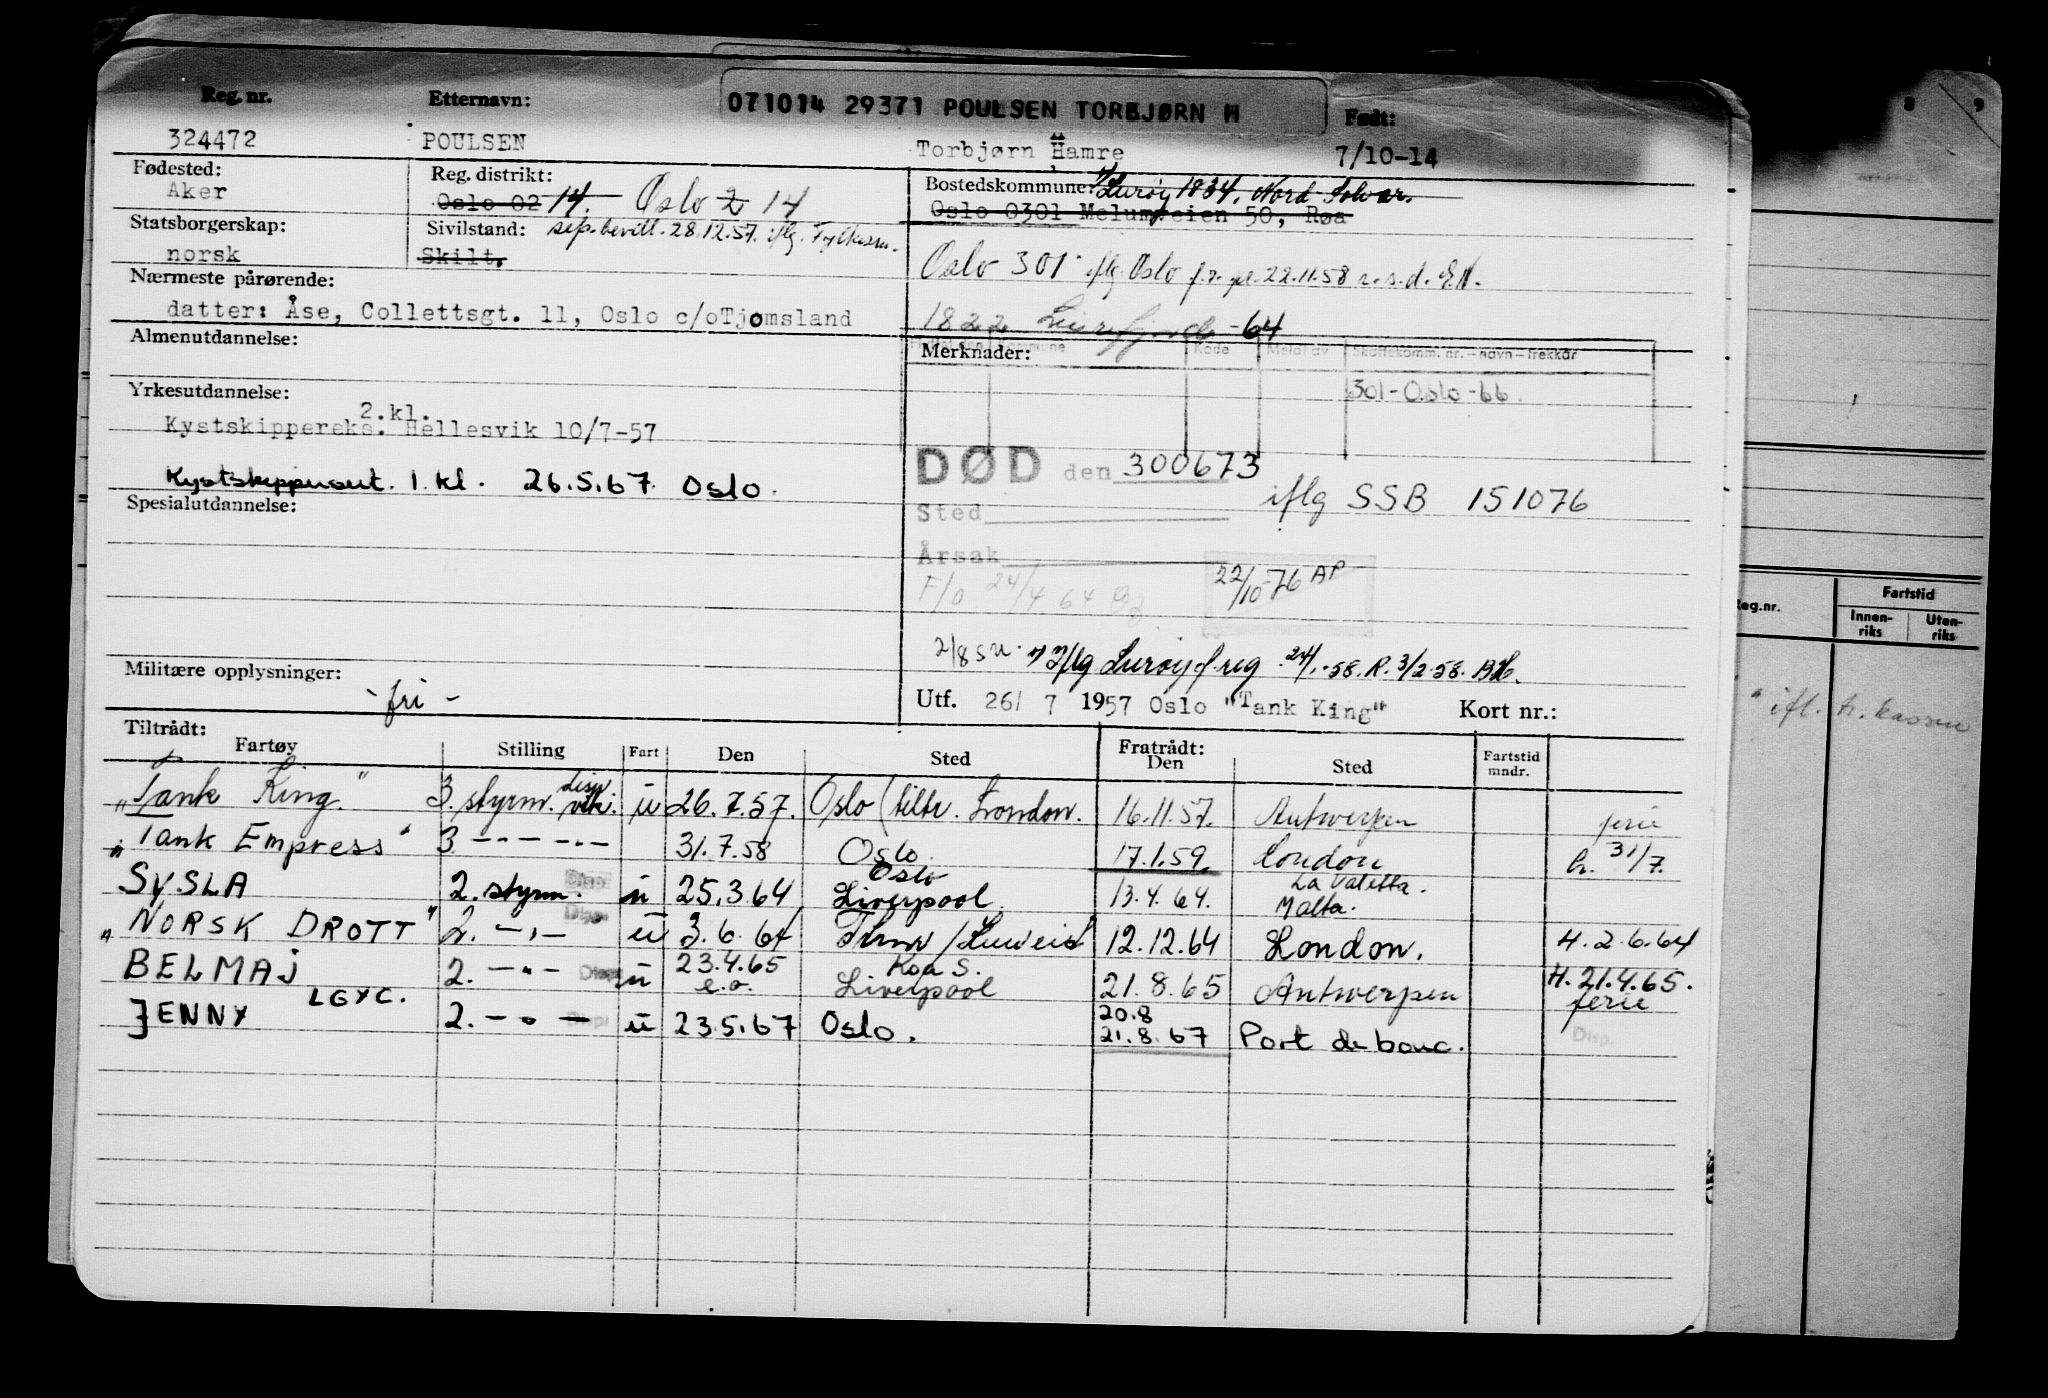 071014 29371 POULSEN TORBJØRN H
Reg. nr. Etternavn: Født:
324472 POULSEN Torbjørn Hamre 7/10-14
Fødested: Reg. distrikt: Bostedskommune: Lurøy 1834, Nord-Solvær.
Aker Oslo 02 14. Oslo 2 14 Oslo 0301 Melumveien 50, Røa
Statsborgerskap: Sivilstand: sep. bevill. 28.12.57. iflg. Fylkesm.
norsk Skilt. Oslo 301 iflg Oslo f.r. pr. 22.11.58 r.s.d. EN.
Nærmeste pårørende:
datter: Åse, Collettsgt. 11, Oslo c/o Tjømsland 1822 Leirfjord -64
Almenutdannelse: Merknader:
Kommune Kode Meldt av Skattekomm. nr. – navn – trekkår
301-Oslo-66
Yrkesutdannelse:
2.kl.
Kystskippereks. Hellesvik 10/7-57
DØD den 300673
Kystskippersert. 1. kl. 26.5.67. Oslo. iflg SSB 151076
Spesialutdannelse: Sted
Årsak
F/o 24/4.64 22/10-76 AP
2/8 su. Iflg Lurøy f.reg. 24/1.-58. R. 3/2-58. BH.
Militære opplysninger:
- fri - Utf. 26/ 7 1957 Oslo "Tank King" Kort nr.:
Tiltrådt: Fratrådt:
Fartøy Stilling Fart Den Sted Den Sted Fartstid mndr.
"Tank King" 3. styrm. disp. vitr. u 26.7.57. Oslo (tiltr. London. 16.11.57. Antwerpen ferie
"Tank Empress" 3 -"- -"- 31.7.58 Oslo 17.1.59. London h. 31/7.
SYSLA 2. styrm. Disp. u 25.3.64 Oslo Liverpool 13.4.64. La Valetta. Malta.
"NORSK DROTT" 2. -"- Disp u 3.6.64 12.12.64 London. H. 2.6.64
BELMAJ 2. -"- Disp u 23.4.65 e.o. Koa S. Liverpool 21.8.65 Antwerpen H. 21.4.65. ferie
JENNY LGYC. 2. -"- Disp. u 23.5.67 Oslo. 20.8 21.8.67 Port de bouc. Disp.
8 9
Reg.nr. Fartstid
Innen-riks Uten-riks
" ifl. tr. kassen